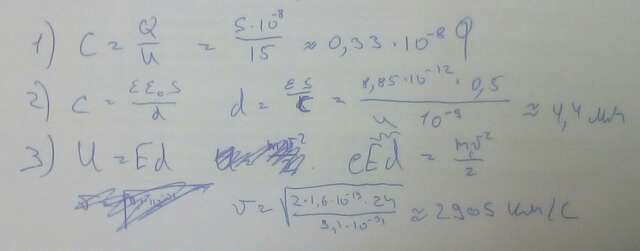 1) C = Q/U = 5·10⁻⁸/15 ≈ 0,33·10⁻⁸ Ф
2) C = εε₀S/d d = εS/C = 8,85·10⁻¹²·0,5/10⁻⁹ ≈ 4,4 мм
3) U = Ed eEd = mv²/2
v = √(2·1,6·10⁻¹⁹·24/9,1·10⁻³¹) ≈ 2905 км/с